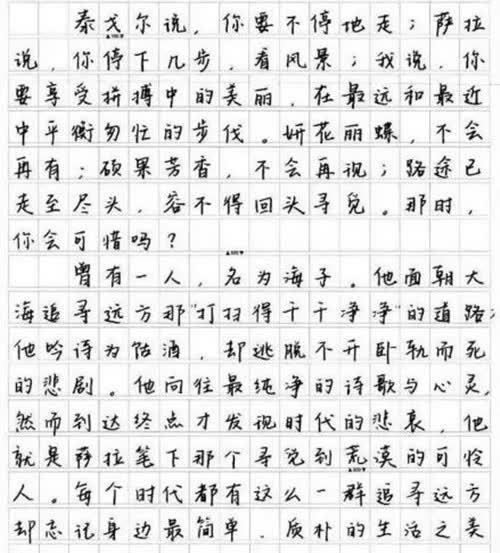 泰戈尔说，你要不停地走；萨拉
说，你停下几步，看风景；我说，你
要享受拼搏中的美丽，在最远和最近
中平衡匆忙的步伐。妍花丽蝶，不会
再有；硕果芳香，不会再现；路途已
走至尽头，容不得回头寻觅。那时，
你会可惜吗？
曾有一人，名为海子。他面朝大
海追寻远方那"打扫得干干净净"的道路；
他吟诗为酤酒，却逃脱不开卧轨而死
的悲剧。他向往最纯净的诗歌与心灵，
然而到达终点才发现时代的悲哀，他
就是萨拉笔下那个寻觅到荒漠的可怜
人。每个时代都有这么一群追寻远方
却忘记身边最简单、质朴的生活之美